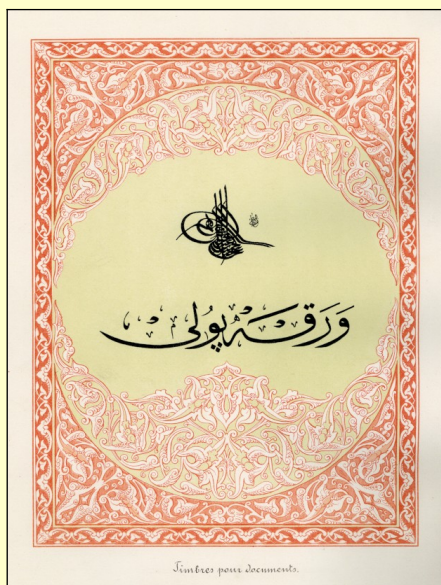 وَرَقَه پُولی
Timbres pour documents.